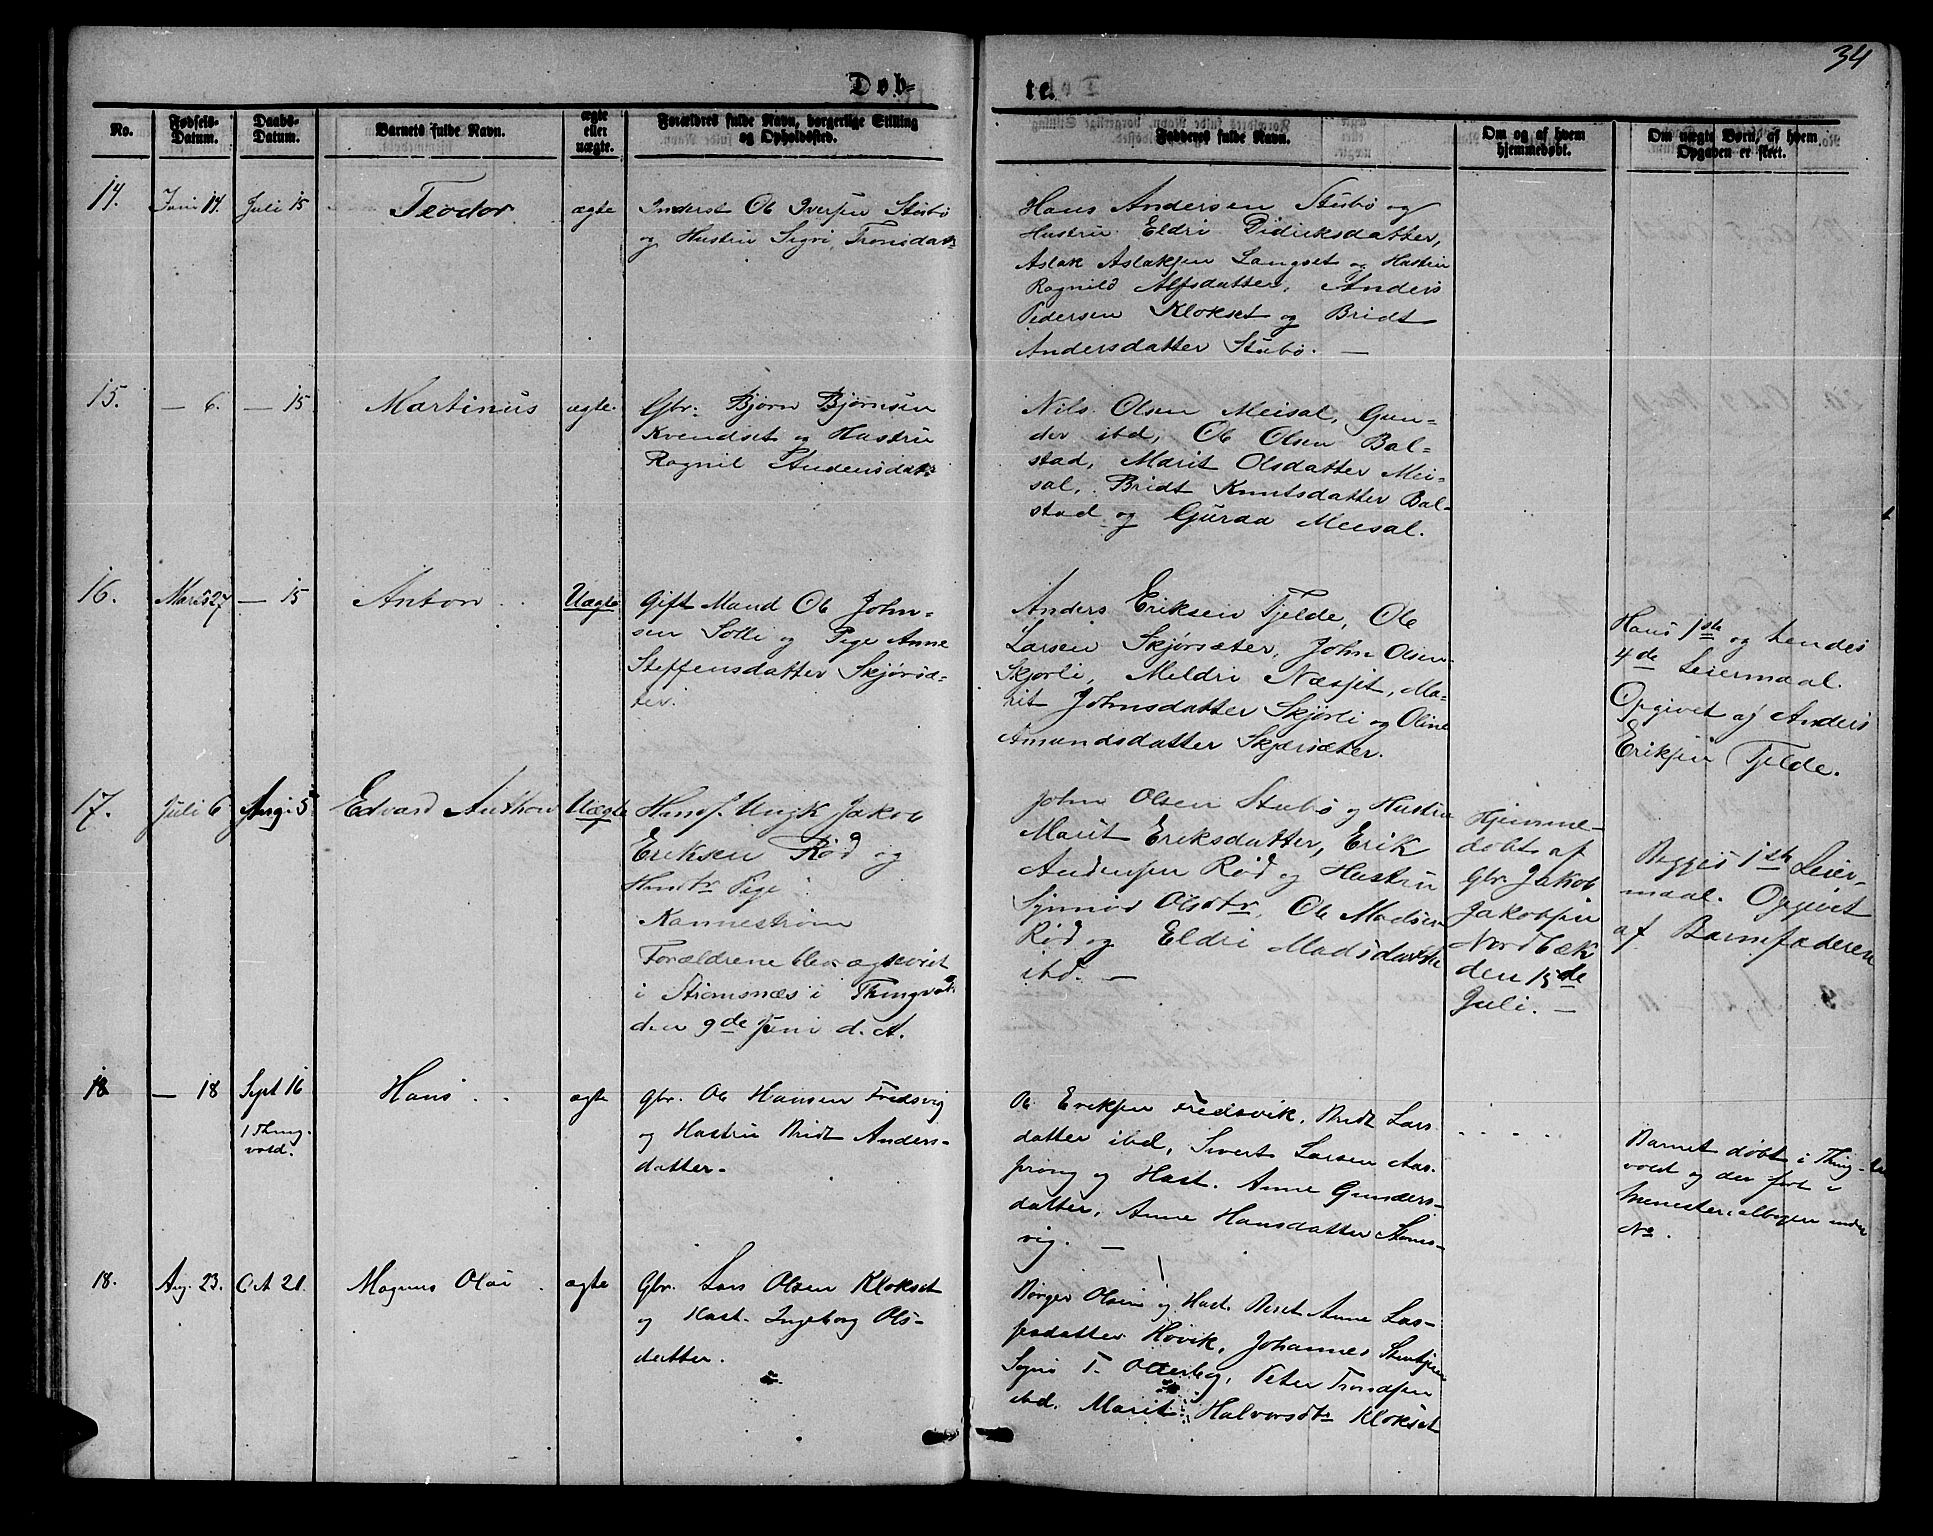 34
Døb-
te.
No.
Fødsels-
Datum.
Daabs-
Datum.
Barnets fulde Navn.
ægte
eller
uægte.
Forældres fulde Navn, borgerlige Stilling
og Opholdssted.
Fadderes fulde Navn.
Om og af hvem
hjemmedøbt.
Om uægte Børn, af hvem
Opgaven er skeet.
14.
Juni 14.
Juli 15
Teodor
ægte
Inderst Ole Iversen Stubø
og Hustru Sigri Tronsdatr
Hans Andersen Stubø og
Hustru Eldri Didriksdatter,
Aslak Aslaksen Langset og Hustru
Ragnild Alfsdatter, Anders
Pedersen Klokset og Bridt
Andersdatter Stubø. —
15.
— 6.
— 15
Martinus
ægte.
Gbr. Bjørn Bjørnsen
Kvendset og Hustru
Ragnil Andersdatr
Nils Olsen Meisal, Gun-
der ibd, Ole Olsen Bal-
stad, Marit Olsdatter Mei-
sal, Bridt Knutsdatter Bal-
stad og Guraa Meisal.
16.
Marts 27
— 15
Anton
Uægte
Gift Mand Ole John-
sen Solli og Pige Anne
Steffensdatter Skjørsæ-
ter.
Anders Eriksen Tjelde, Ole
Larsen Skjørsæter, John Olsen
Skjorli, Meldri Næsjet, Ma-
rit Johnsdatter Skjørli og Oline
Amundsdatter Skjørsæter.
Hans 1ste og hendes
4de Leiermaal.
Opgivet af Anders
Eriksen Tjelde.
17.
Juli 6
Aug. 5
Edvard Anthon
Uægte
Ungk Jakob
Eriksen Rød og
Pige
Kannestrøm
Forældrene blev ægteviet
i Strømsnæs i Thingvold
den 9de Juni d. A.
John Olsen Stubø og Hustru
Marit Eriksdatter, Erik
Andersen Rød og Hustru
Synnøv Olsdtr, Ole Madsen
Rød og Eldri Madsdatter
ibd. —
Hjemme-
døbt af
Gbr. Jakob
Jakobsen
Nordbæk
den 15de
Juli. —
Begges 1ste Leier-
maal. Opgivet
af Barnefaderen
18
— 18
Sept 16
i Thing-
vold.
Hans
ægte
Gbr. Ole Hansen Fredsvig
og Hustru Bridt Anders-
datter.
Ole Eriksen Fredsvik, Bridt Lars
datter ibd, Sivert Larsen Aas-
prong og Hust. Anne Gunders-
datter, Anne Hansdatter Stoms-
vig. —
Barnet døbt i Thing-
vold og der ført i
Ministerialbogen under
No .
18.
Aug. 23.
Oct 21.
Magnus Olai
ægte
Gbr. Lars Olsen Klokset
og Hust. Ingeborg Ols-
datter.
Børger Olsen og Hust. Beret Anne Las-
sesdatter Høvik, Johannes
T. Otterbeg, Peter Trondsen
ibd. Marit Halvorsdtr Klokset